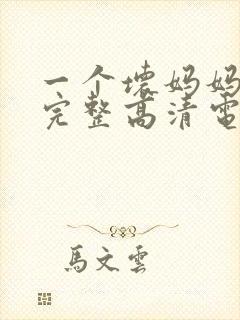 一个壞妈妈
完整高清電
馬文雲